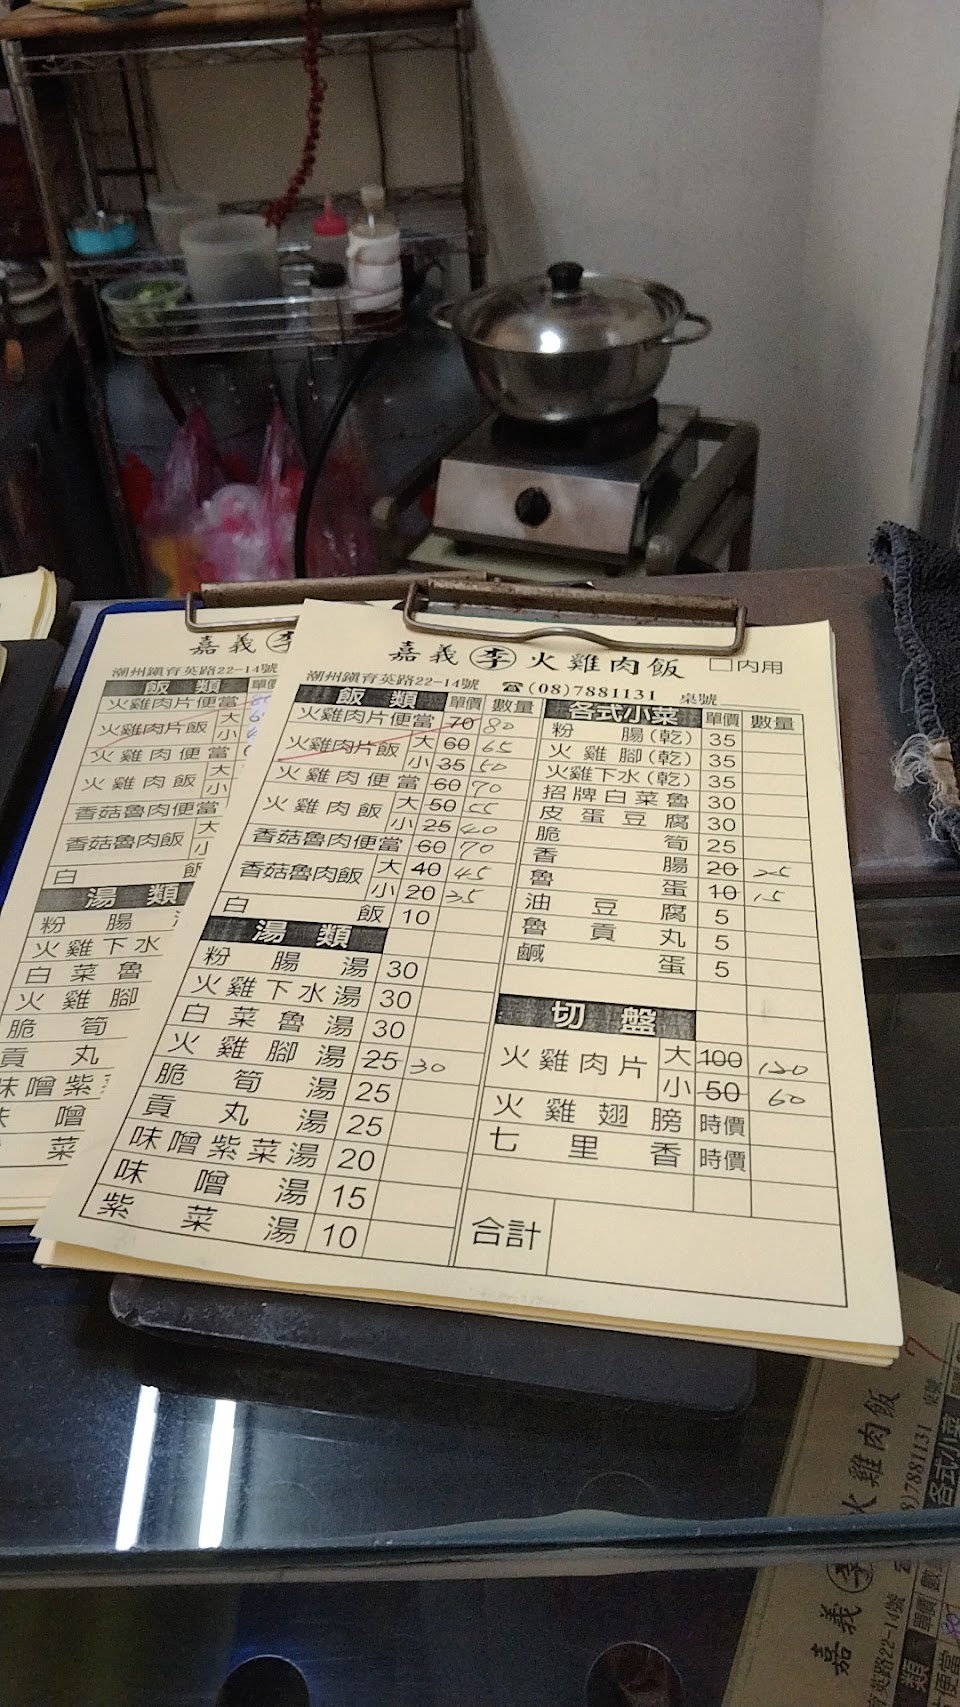 嘉義李火雞肉飯 □內用
潮州鎮育英路22-14號 ☎(08)7881131 桌號
飯類 單價 數量
火雞肉片便當 70 80
火雞肉片飯 大 60 65
小 35 50
火雞肉便當 60 70
火雞肉飯 大 50 55
小 25 40
香菇魯肉便當 60 70
香菇魯肉飯 大 40 45
小 20 35
白飯 10
湯類
粉腸湯 30
火雞下水湯 30
白菜魯湯 30
火雞腳湯 25 30
脆筍湯 25
貢丸湯 25
味噌紫菜湯 20
味噌湯 15
紫菜湯 10
各式小菜 單價 數量
粉腸(乾) 35
火雞腳(乾) 35
火雞下水(乾) 35
招牌白菜魯 30
皮蛋豆腐 30
脆筍 25
香腸 20 25
魯蛋 10 15
油豆腐 5
魯貢丸 5
鹹蛋 5
切盤
火雞肉片 大 100 120
小 50 60
火雞翅膀 時價
七里香 時價
合計
嘉義李
潮州鎮育英路22-14號
飯類 單
火雞肉片便當
火雞肉片飯 大
小
火雞肉便當
火雞肉飯 大
小
香菇魯肉便當
香菇魯肉飯 大
小
白飯
湯類
粉腸
火雞下水
白菜魯
火雞腳
脆筍
貢丸
味噌紫
味噌
菜
火雞肉飯 7
8)7881131 桌號
各式小菜
嘉義李
育英路22-14號
類 單價 數
便當 80